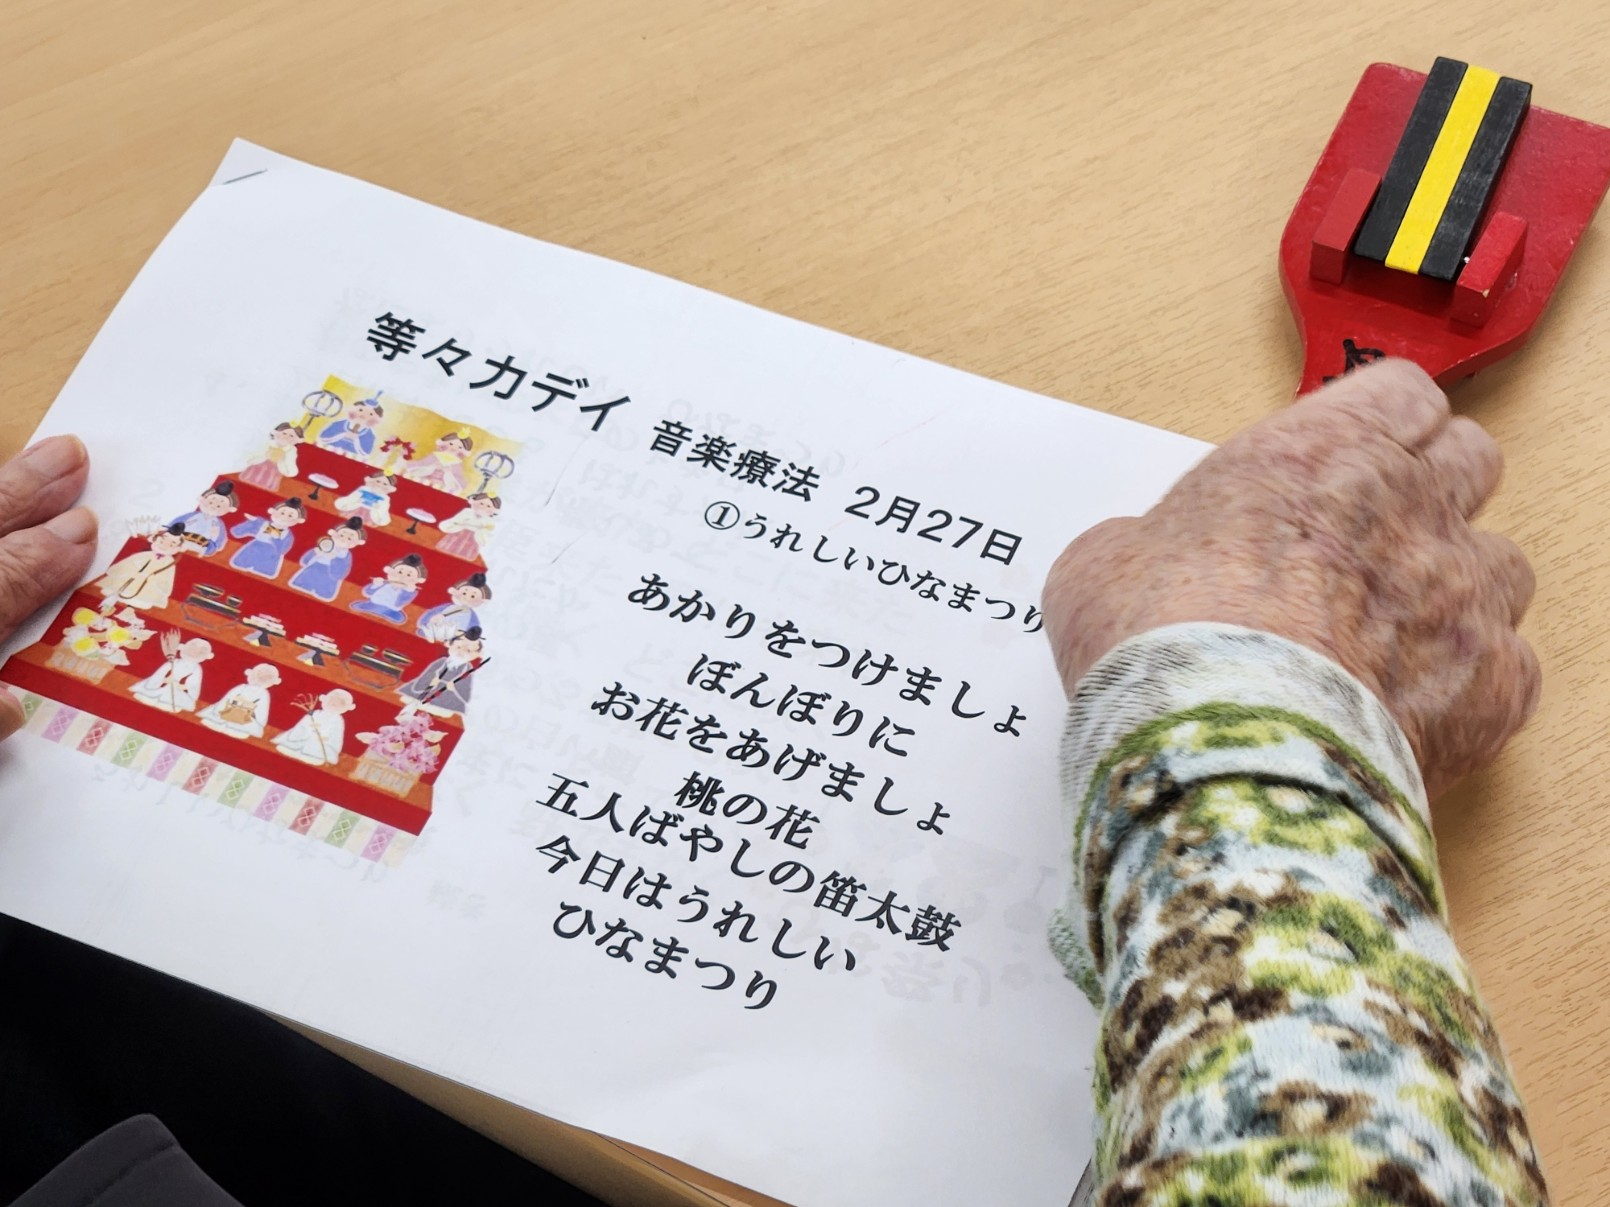 等々力デイ 音楽療法 2月27日
①うれしいひなまつり
あかりをつけましょ
ぼんぼりに
お花をあげましょ
桃の花
五人ばやしの笛太鼓
今日はうれしい
ひなまつり